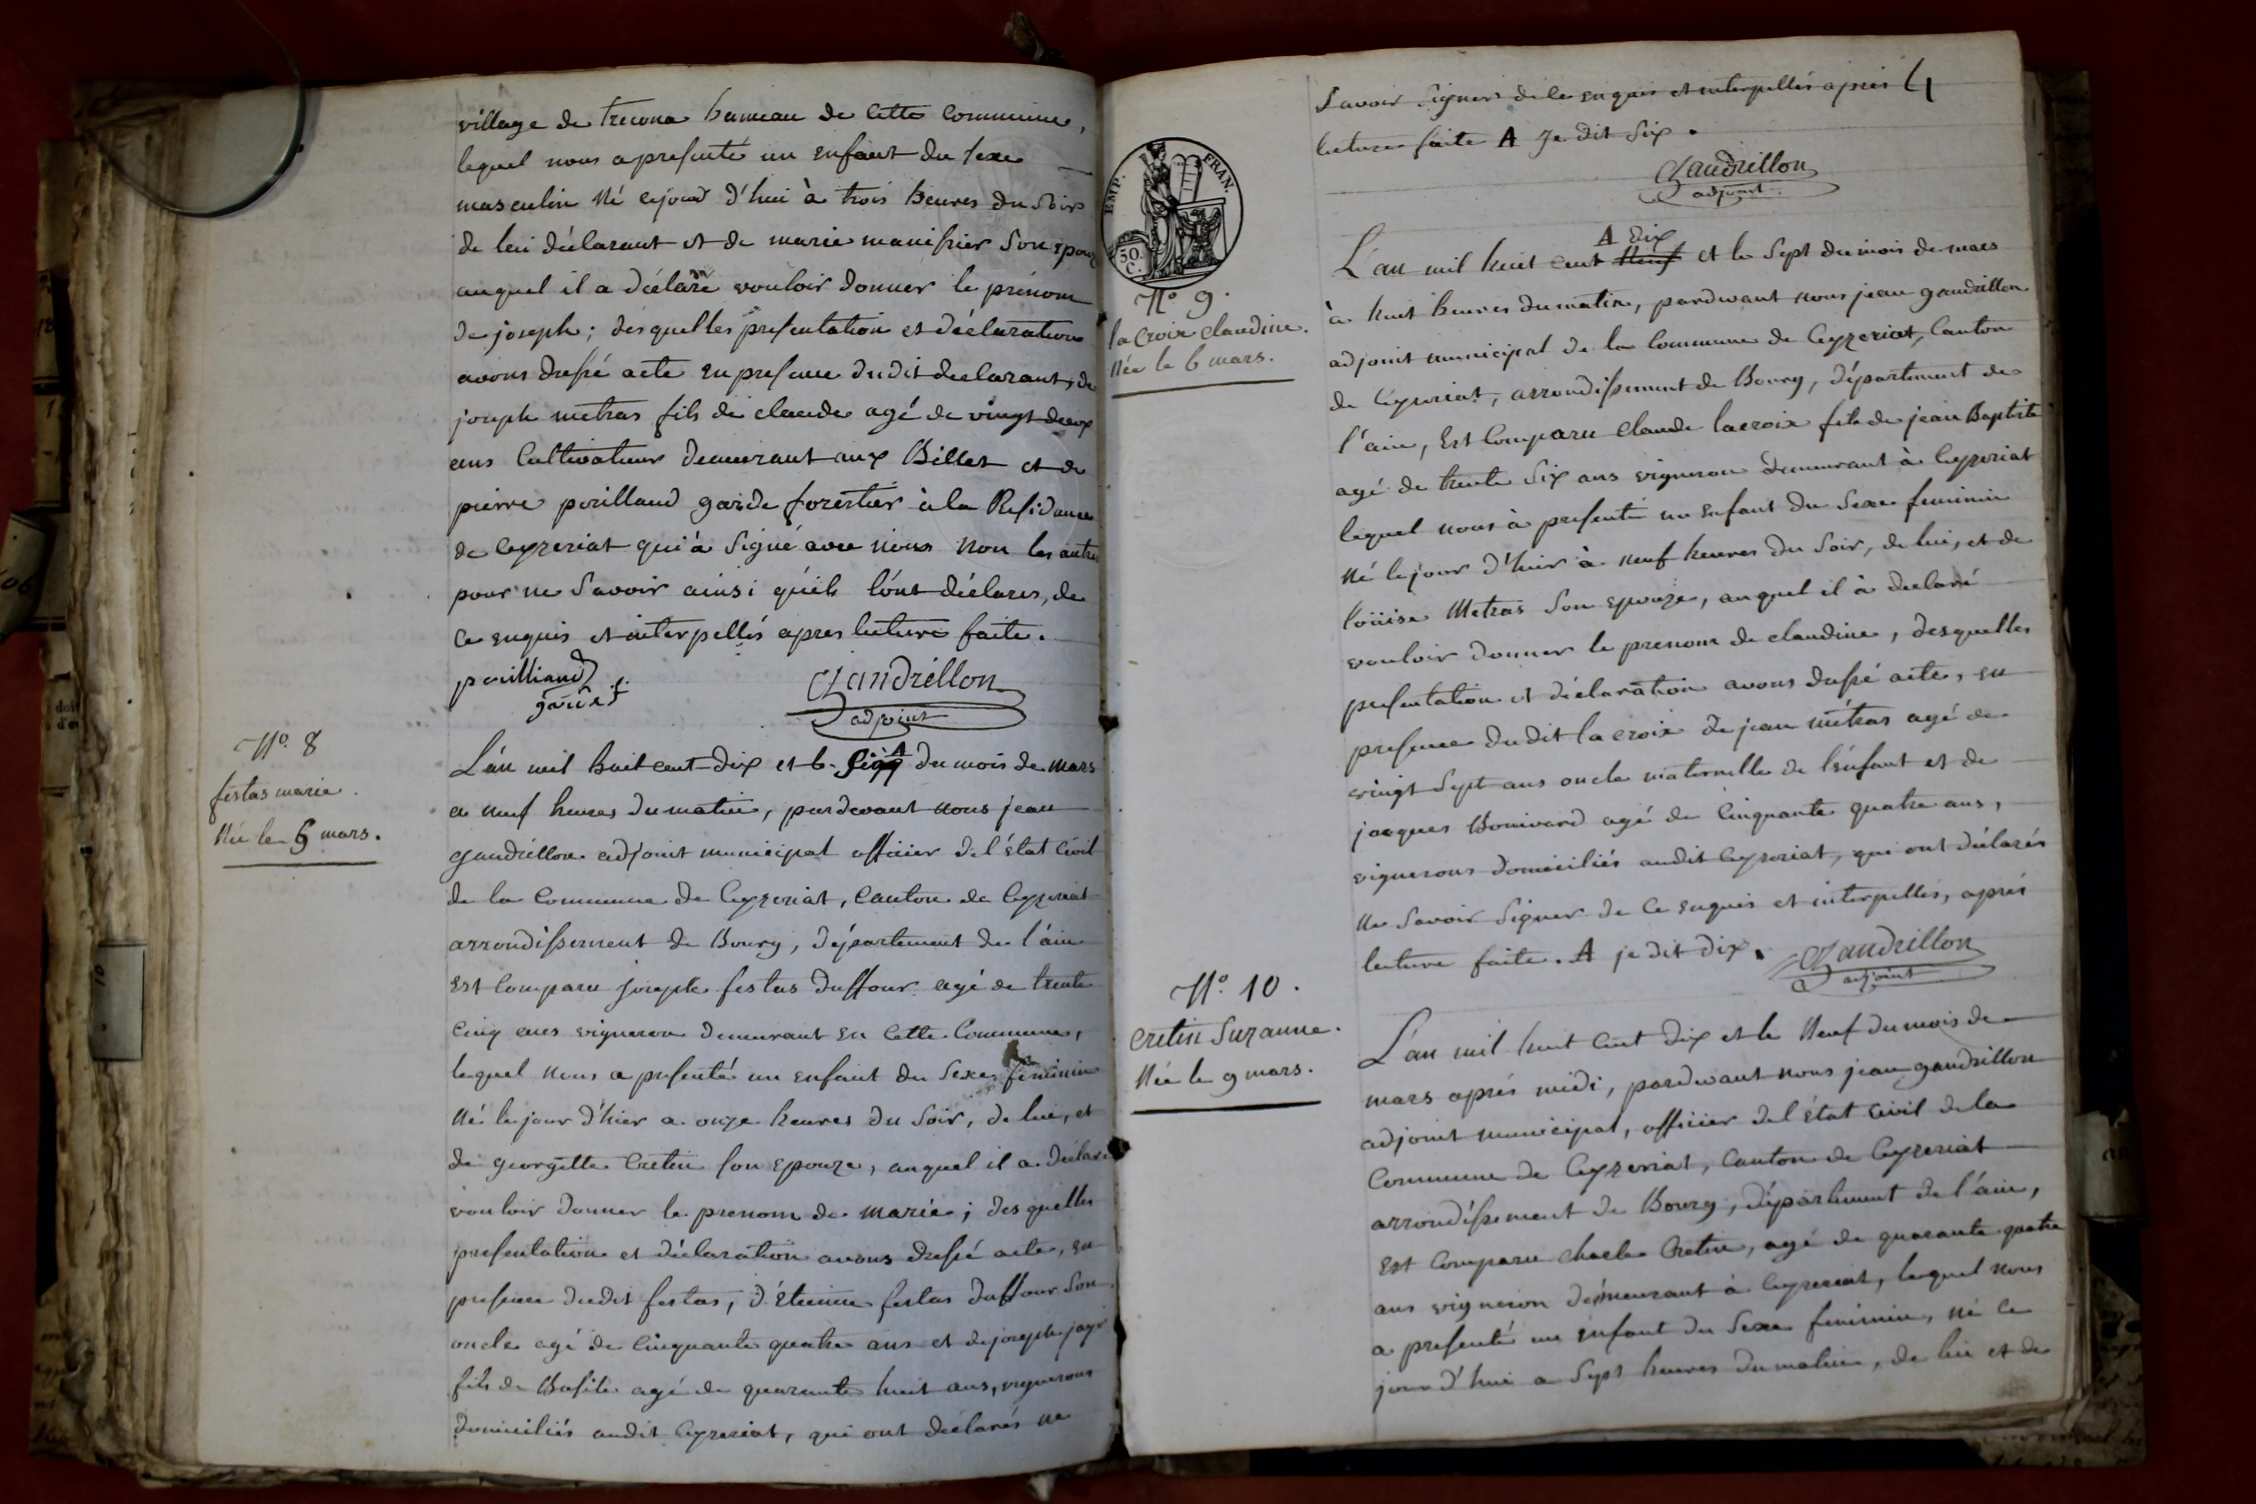 village de trecona hameau de cette commune,
lequel nous a presenté un enfant du sexe
masculin né cejourd'hui à trois heures du soir
de lui déclarant et de marie manissier son epouz
auquel il a déclaré vouloir donner le prénom
de joseph; desquelles presentation et déclaration
avons dressé acte en presence dudit declarant, de
joseph metras fils de claude agé de vingt deux
ans cultivateur demeurant aux Billes et de
pierre porilland garde forestier à la Residance
de Ceyzeriat qui à signé avec nous non les autres
pour ne savoir ainsi qu'ils l'ont déclarés, de
ce enquis et interpellés apres lecture faite.
pouilliand garde f.
Gandrillon
adjoint
N.º 8
festas marie.
Née le 6 mars.
L'án mil huit cent dix et le Six A du mois de mars
a neuf heures du matin, pardevant nous jean
gandrillon adjoint municipal officier de l'état civil
de la commune de Ceyzeriat, canton de Ceyzeriat
arrondissement de Bourg, département de l'ain
Est comparu joseph festas duffour agé de trente
cinq ans vigneron demeurant en cette commune,
lequel nous a presenté un enfant du sexe feminin
Né le jour d'hier a onze heures du soir, de lui, et
de georgette Cretin son epouze, auquel il a déclaré
vouloir donner le prenom de marie; desquelles
presentation et déclaration avons dressé acte, en
presence dudit festas, d'étienne festas duffour son
oncle agé de cinquante quatre ans et de joseph jayr
fils de Basile agé de quarante huit ans, vignerons
domiciliés audit Ceyzeriat, qui ont déclarés ne
4
Savoir signer de ce enquis et interpellés apres
lecture faite A Je dit six.
Gandrillon
adjoint
EMP. FRAN.
50. C.
N.º 9.
la Croix claudine.
Née le 6 mars.
A dix
L'an mil huit cent Neuf et le sept du mois de mars
à huit heures du matin, pardevant nous jean gandrillon
adjoint municipal de la commune de Ceyzeriat, canton
de Ceyzeriat, arrondissement de Bourg, département de
l'ain, Est comparu claude lacroix fils de jean Baptiste
agé de trente six ans vigneron demeurant à Ceyzeriat
lequel nous à presenté un enfant du sexe feminin
Né le jour d'hier à neuf heures du soir, de lui, et de
loüise Metras son epouze, auquel il à declaré
vouloir donner le prenom de claudine, desquelles
presentation et déclaration avons dressé acte, en
presence dudit la croix de jean métras agé de
vingt sept ans oncle maternelle de l'énfant et de
jacques Bonivard agé de cinquante quatre ans,
vignerons domiciliés audit Ceyzeriat, qui ont déclarés
Ne savoir signer de ce enquis et interpellés, aprés
lecture faite. A je dit dix.
Gandrillon
adjoint
N.º 10.
Cretin Suzanne.
Née le 9 mars.
L'an mil huit cent dix et le Neuf du mois de
mars aprés midi, pardevant nous jean gandrillon
adjoint municipal, officier de l'état civil de la
Commune de Ceyzeriat, canton de Ceyzeriat
arrondissement de Bourg, département de l'ain,
Est comparu charles Cretin, agé de quarante quatre
ans vigneron démeurant à Ceyzeriat, lequel nous
a presenté un énfant du sexe feminin, né ce
jour d'hui a sept heures du matin, de lui et de